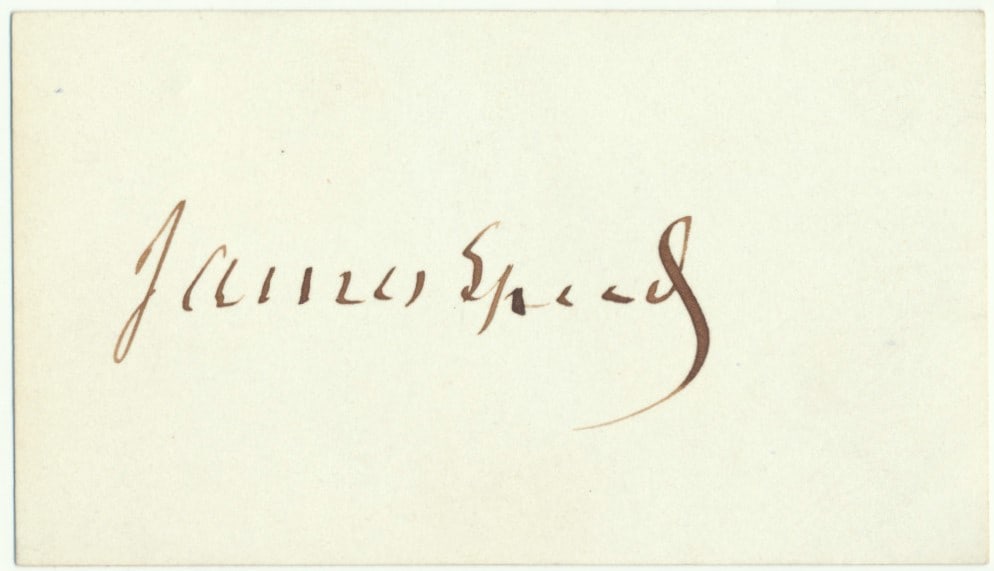 James Speed